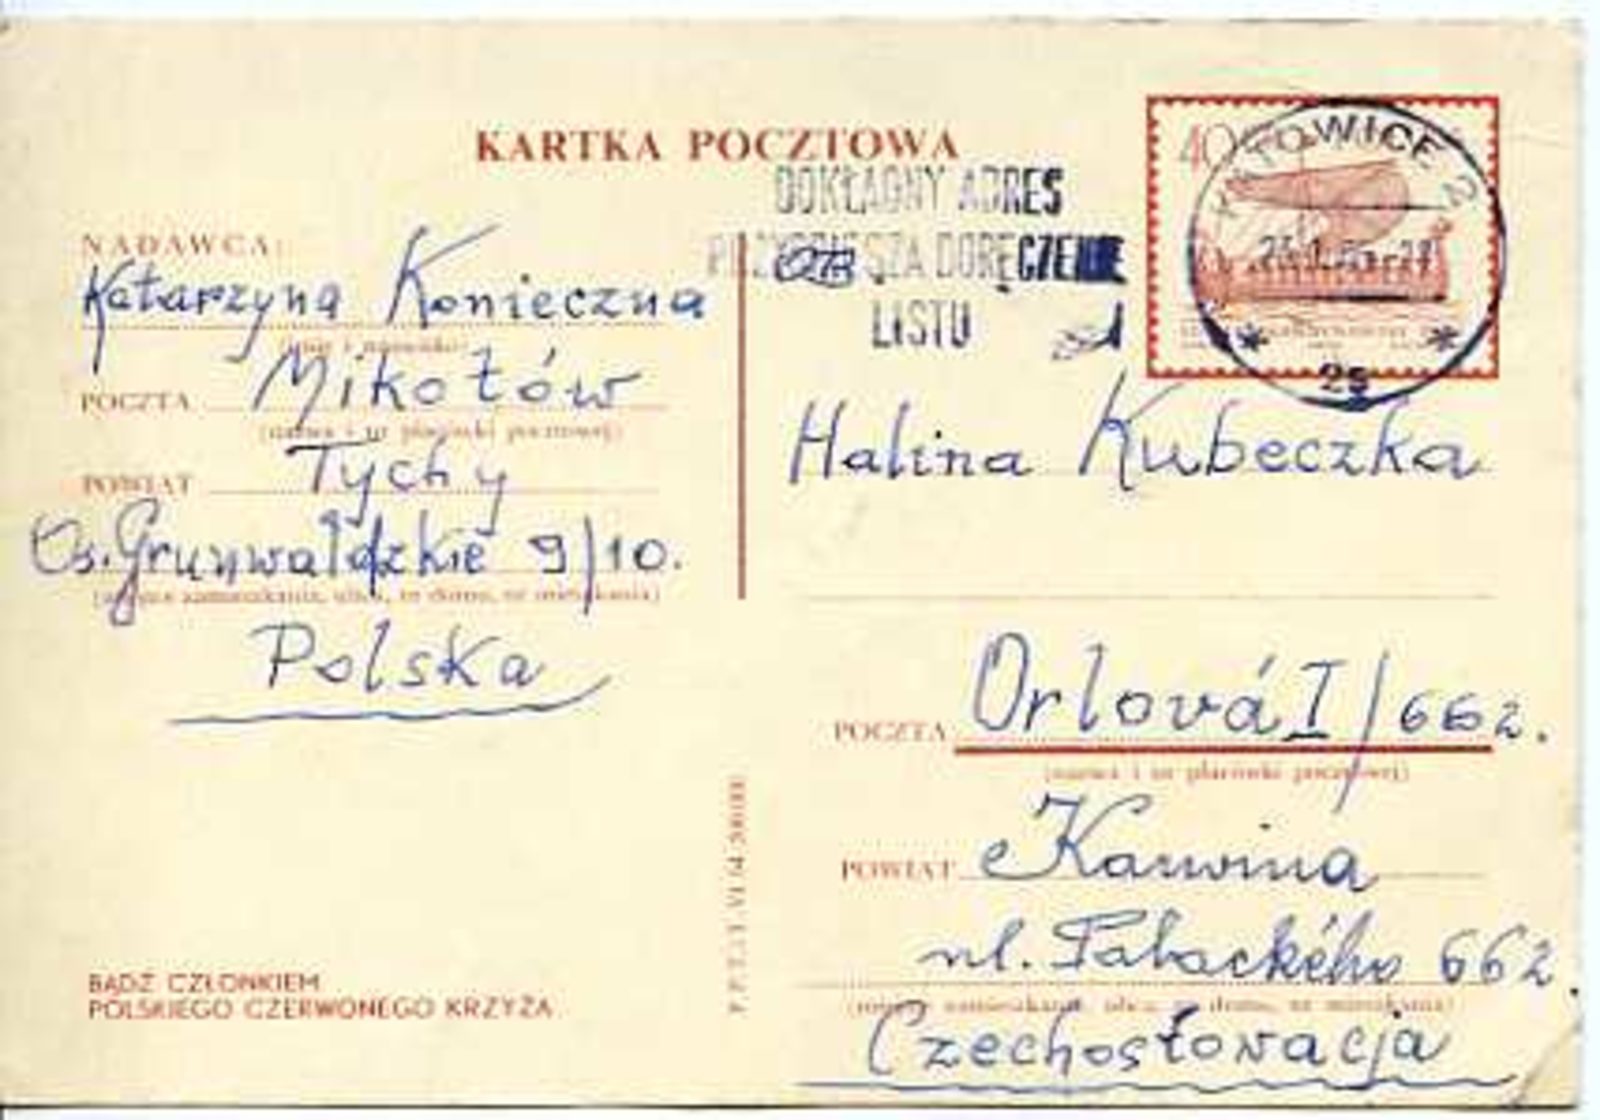 KARTKA POCZTOWA
DOKŁADNY ADRES
DORĘCZENIE
LISTU
40
KATOWICE 2
2s
NADAWCA:
Katarzyna Konieczna
(imię i nazwisko)
POCZTA Mikołów
(nazwa i nr placówki pocztowej)
POWIAT Tychy
Os. Grunwaldzkie 9/10.
(miejsce zamieszkania, ulica, nr domu, nr mieszkania)
Polska
BĄDŹ CZŁONKIEM
POLSKIEGO CZERWONEGO KRZYŻA
Halina Kubeczka
POCZTA Orlová I/662.
(nazwa i nr placówki pocztowej)
POWIAT Karwina
ul. Palackého 662.
(miejsce zamieszkania, ulica, nr domu, nr mieszkania)
Czechosłowacja